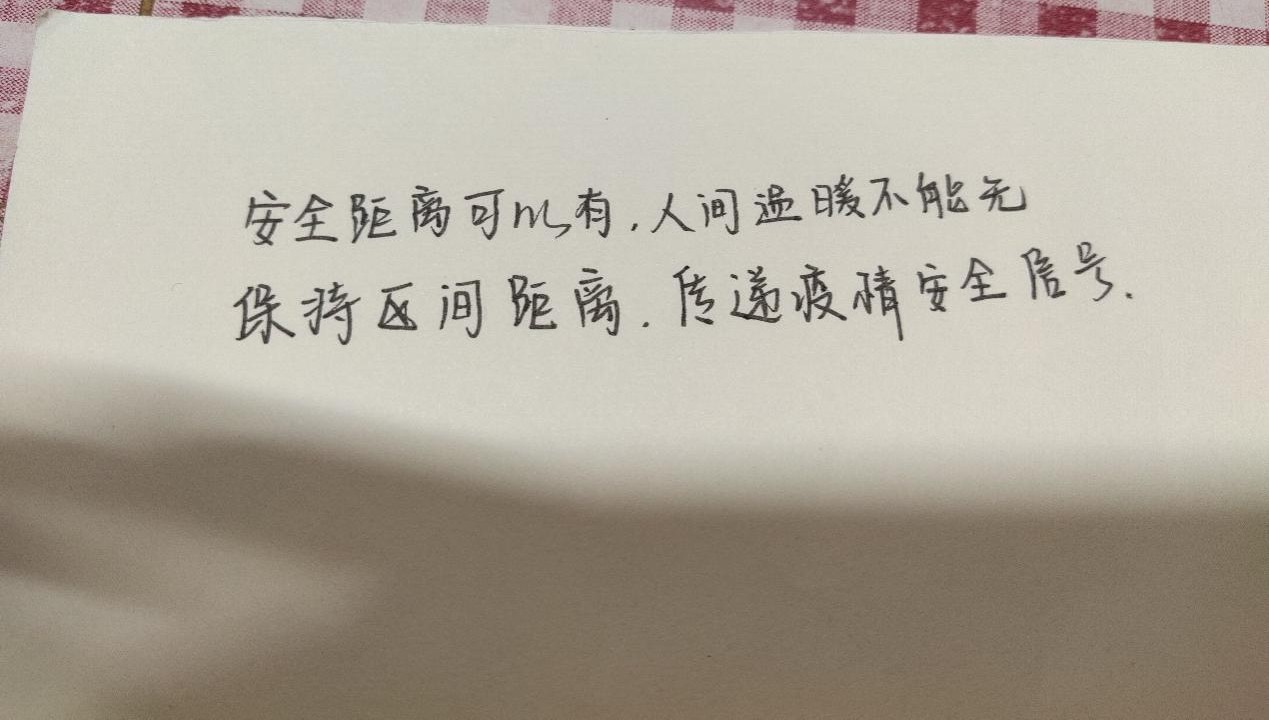 安全距离可以有,人间温暖不能无
保持区间距离.传递疫情安全信号.